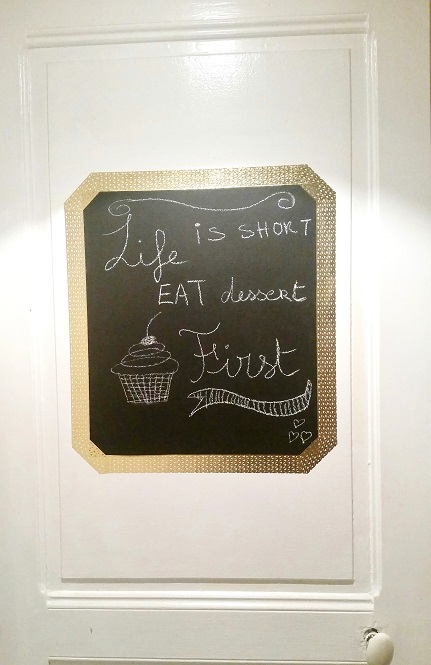 Life is SHORT
EAT dessert
First